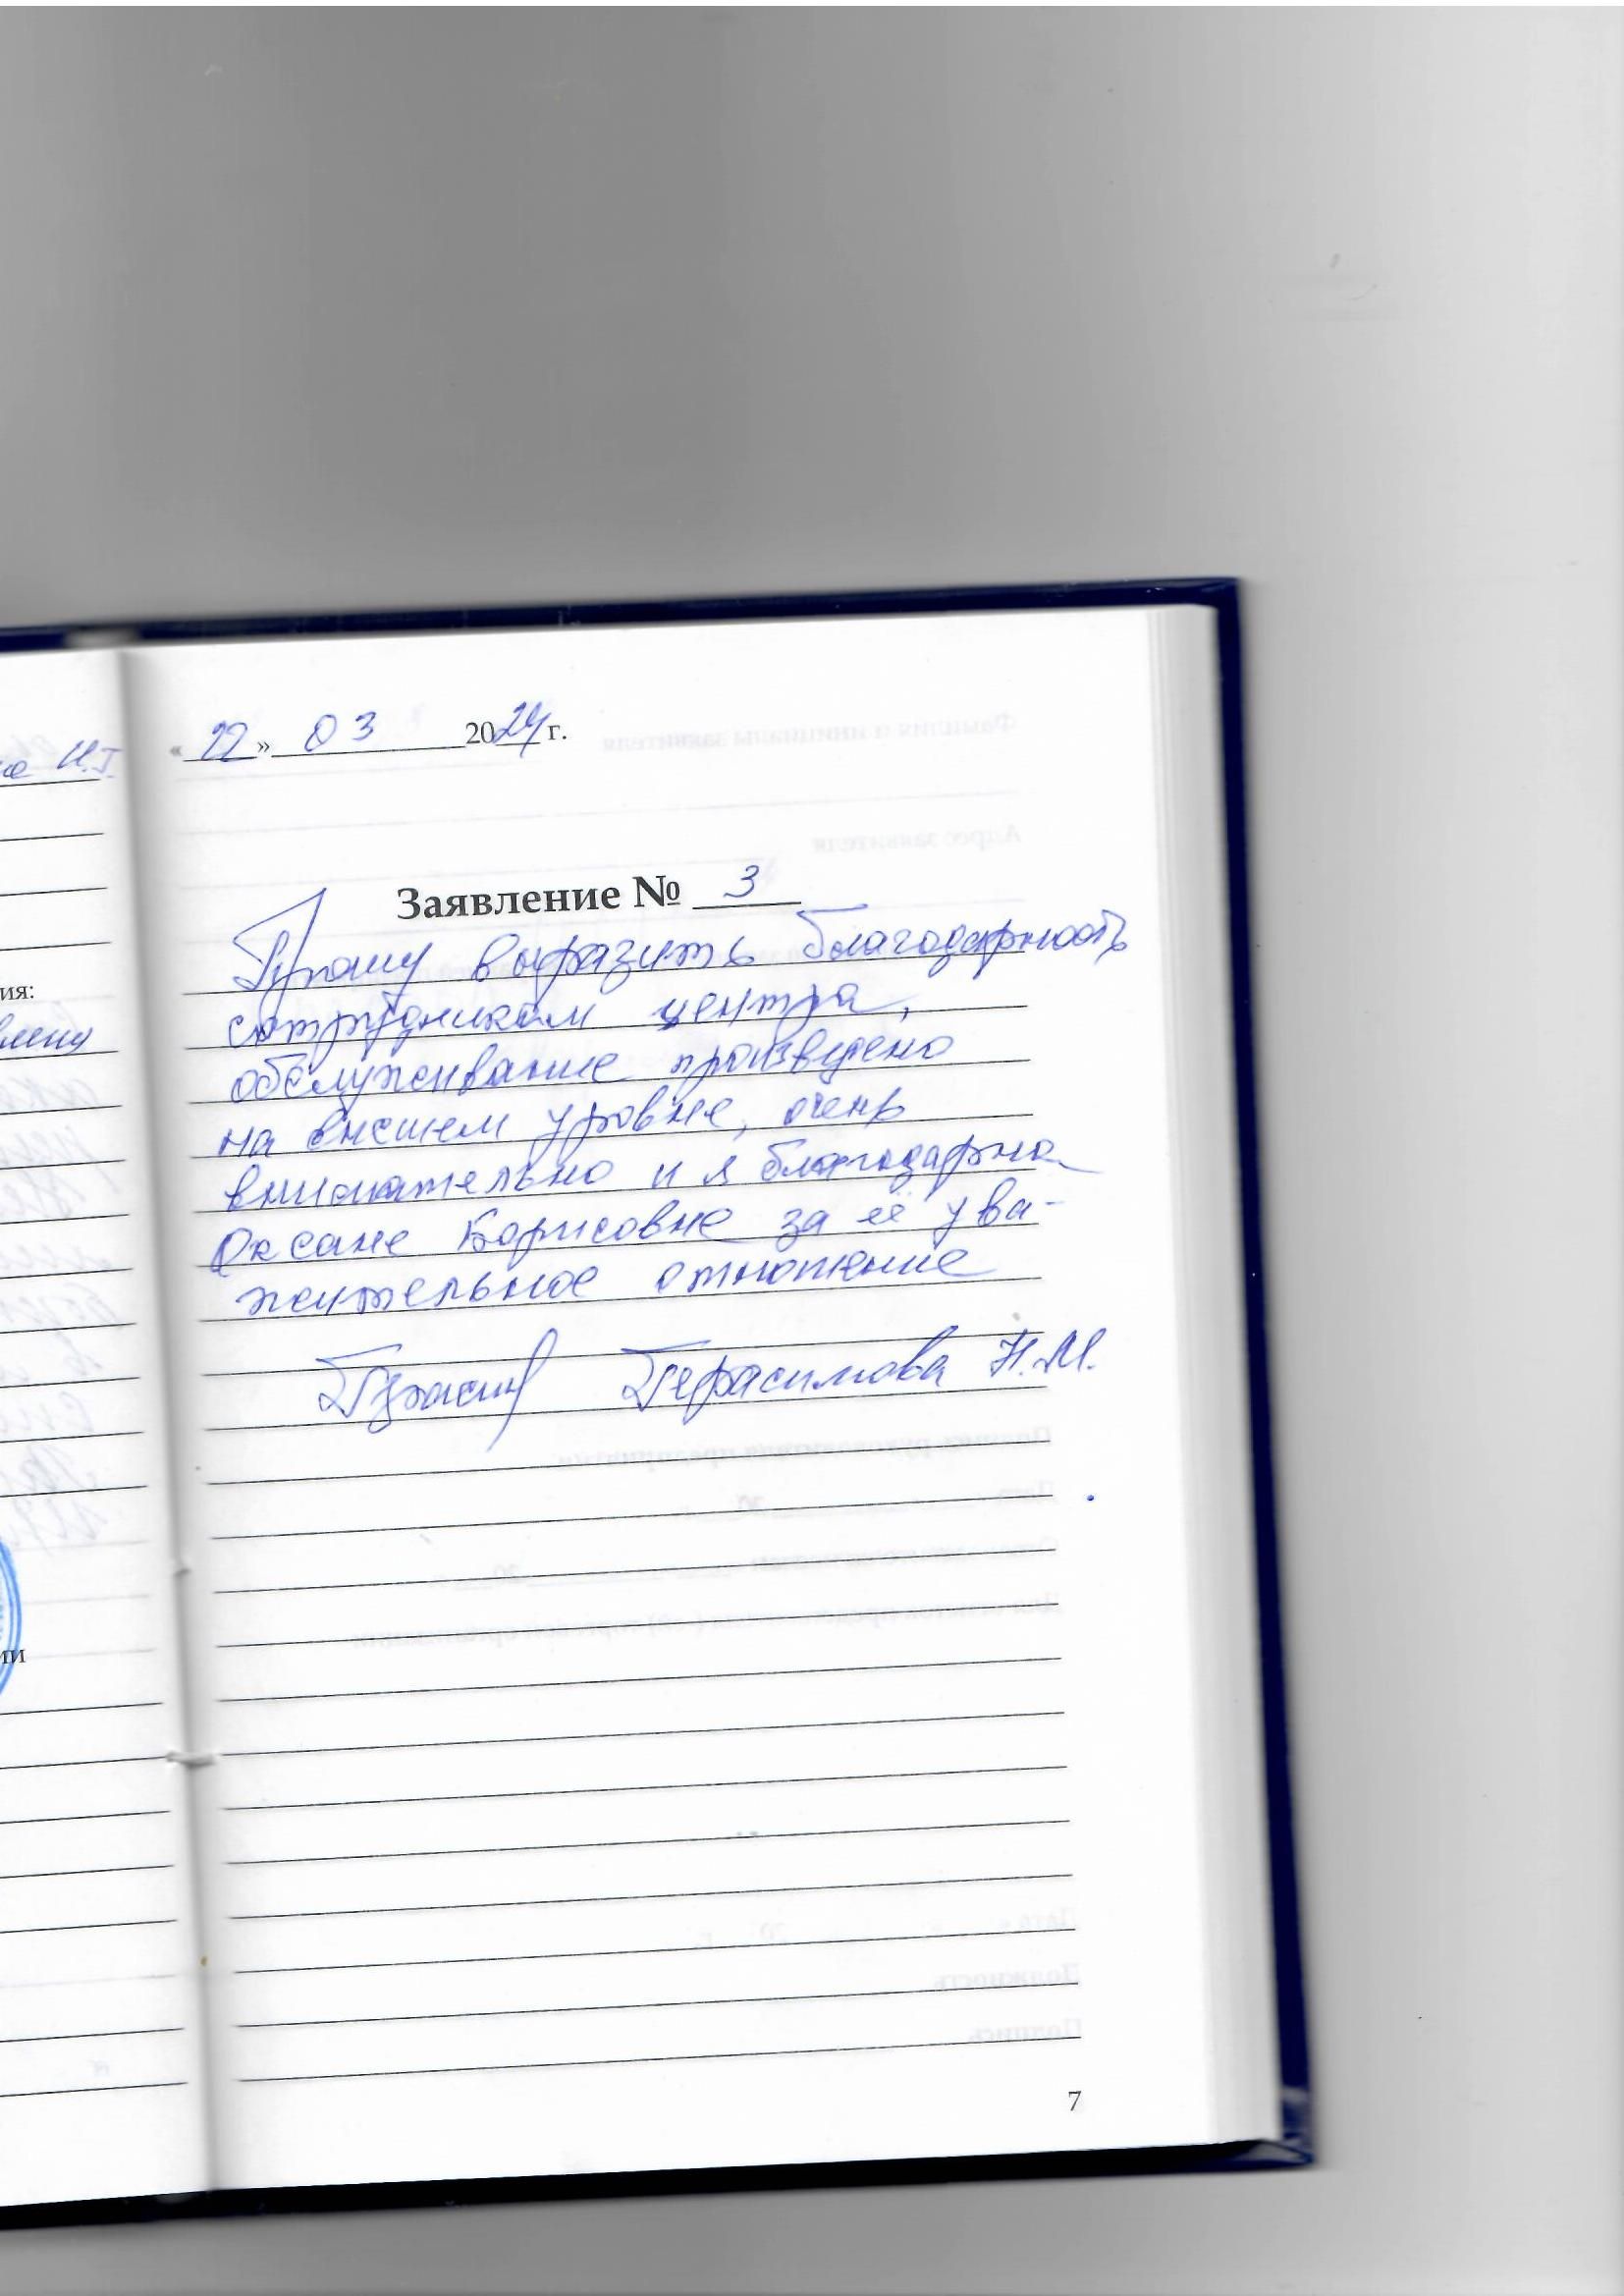 « 22 » 03 2024 г.
Заявление № 3
Прошу выразить благодарность
сотрудникам центра,
обслуживание произведено
на высшем уровне, очень
внимательно и я благодарна
Оксане Борисовне за её ува-
жительное отношение
Герасимова Н.М.
7
Н.Г.
ия:
ии